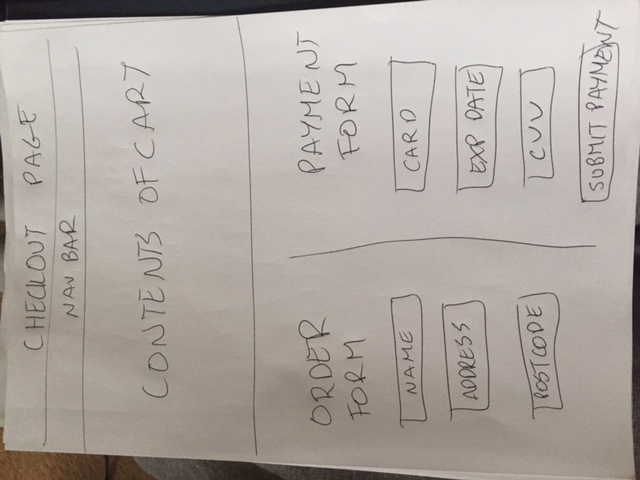 CHECKOUT PAGE
NAV BAR
CONTENTS OF CART
ORDER
FORM
NAME
ADDRESS
POSTCODE
PAYMENT
FORM
CARD
EXP DATE
CVV
SUBMIT PAYMENT